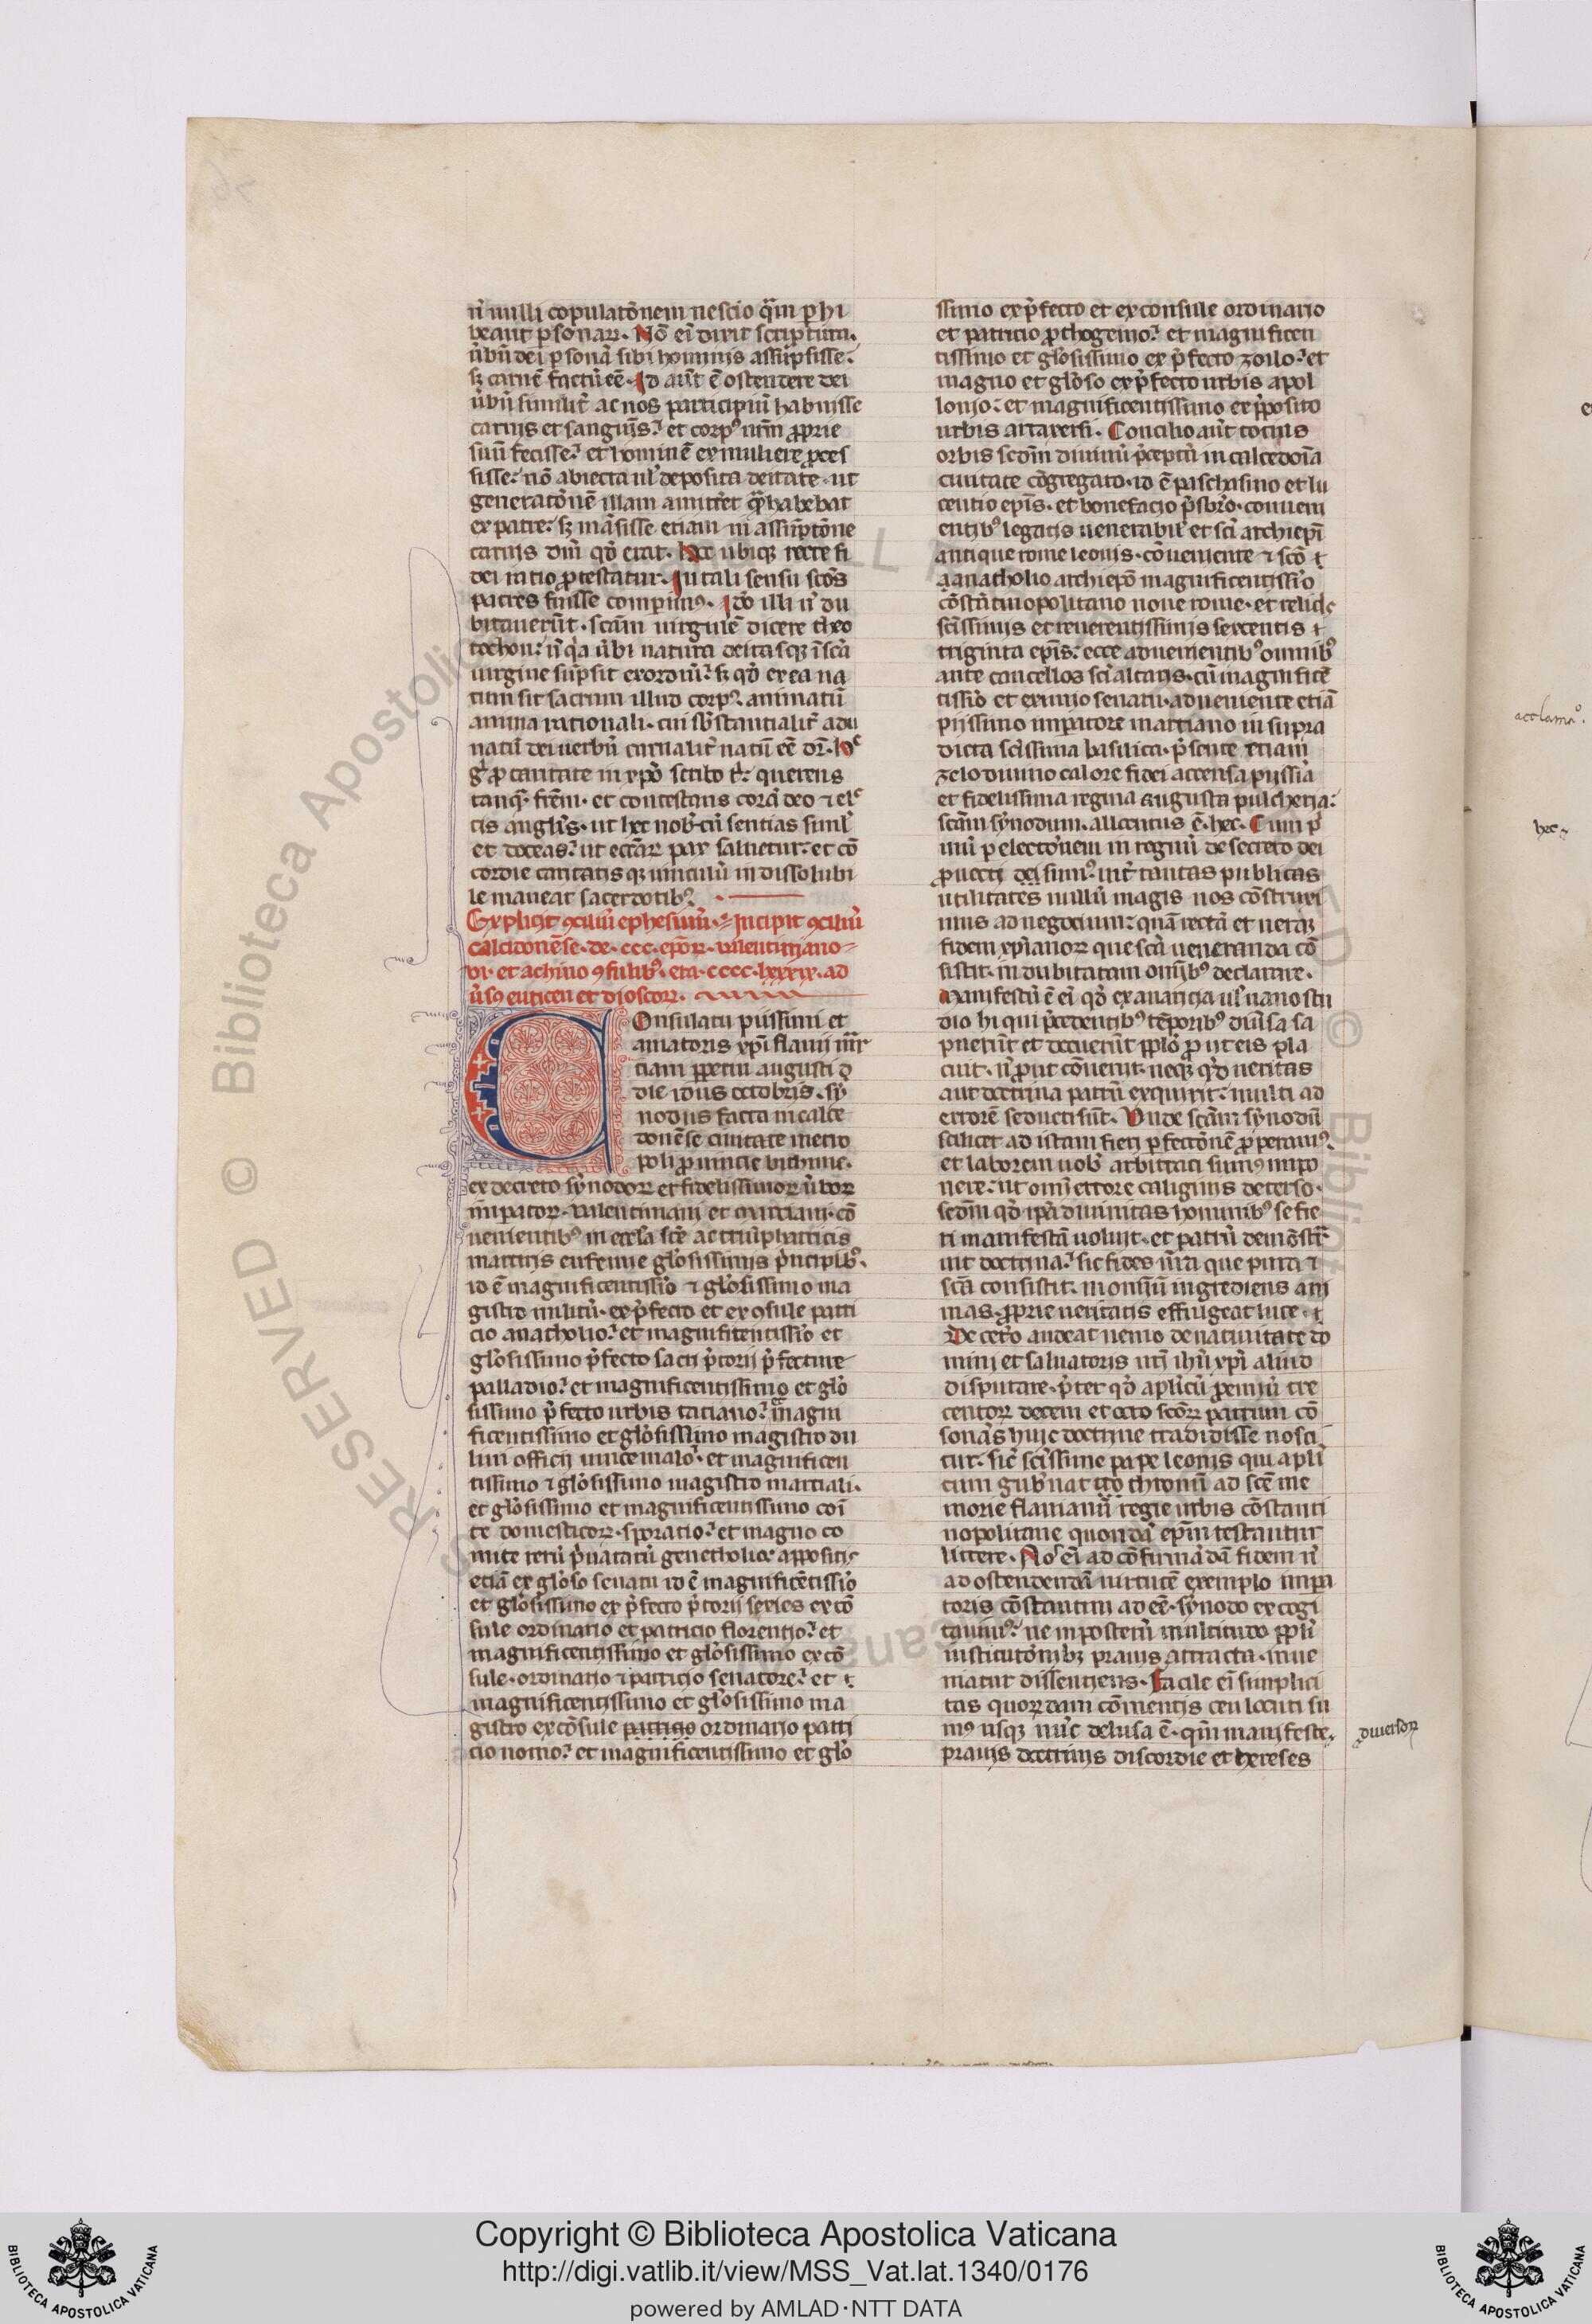 nō nulli copulatōnem nescio quā perhi
beant personarum. Nō eī dixit scriptura.
ūbū dei personā sibi hominis assūpsisse.
sʒ carnē factū eē. Id aūt ē ostendere dei
ūbū similiṫ ac nos participiū habuisse
carnis et sanguis. et corpꝰ nr̄m ꝓprie
suū fecisse. et hominē ex muliere ꝓces
sisse. nō abiecta ul deposita deitate. ut
generatōnē illam amitt'et quā habebat
ex patre. sʒ māsisse etiam in assūptōne
carnis dm̄ qd̓ erat. Hec ubiqʒ recte fi
dei ratio ꝓtestatur. In tali sensu scōs
patres fuisse comperimꝰ. Ideo illi nō du
bitauerūt. scām uirginē dicere theo
tochon. nō qa ūbi natura deitasqʒ ī scā
uirgine sūpsit exordiū. sʒ qd̓ ex ea na
tum sit sacrum illud corpꝰ. animatū
anima rationali. cui sb̓stantialiṫ adu
natū dei uerbū carnaliṫ natū eē dr̄. Hec
g̓ ꝓ caritate in xpō scribo t̓. querens
tanq̄. frēm. et contestans corā deo ⁊ elec
tis angl̓is. ut hec nob̓cū sentias simil̓
et doceas. ut eccl̓iaꝝ pax saluetur. et cō
cordie caritatisqʒ uinculū indissolubi
le maneat sacerdotibꝰ.
Explicit ꝯciliū ephesinū. Incipit ꝯciliū
calcidonēse. de. ccc. ep̄oꝝ. ualentiniano
vi. et achino ꝯsulibꝰ. era. cccc. lxxxix. ad
ūsꝰ euticen et dioscoꝝ.
Consulatu piissimi et
amatoris xp̄i flauii mar
tiani ꝑpetui augusti
die idus octobris. sy
nodus facta in calce
donēse ciuitate metro
poli ꝓuincie bithinie.
ex decreto synodoꝝ et fidelissimoꝝ ūboꝝ
imperatoꝝ. ualentiniani et martiani. cō
uenientibꝰ in eccl̓a scē ac triūphatricis
martiris eufemie gl̓osissimis p̓ncipibꝰ.
id ē magnificentissīo ⁊ gl̓osissimo ma
gistro militū. ex p̓fecto et ex ꝯsule patri
cio anatholio. et magnificentissīo et
gl̓osissimo p̓fecto sacri p̓torii p̓fecture
palladio. et magnificentissimo et gl̓o
sissimo p̓fecto urbis tatiano. magni
ficentissimo et gl̓osissimo magistro du
lim officii uincemalo. et magnificen
tissimo ⁊ gl̓osissimo magistro martiali.
et gl̓osissimo et magnificentissimo comī
te domesticoꝝ. sporatio. et magno co
mite rerū p̓uataꝝ genetholio. appositis
etiā ex gl̓oso senatu id ē magnificētissīo
et gl̓osissimo ex p̓fecto p̓torii sexies ex cō
sule ordinario et patricio florentio. et
magnificentissimo et gl̓osissimo ex cō
sule. ordinario ⁊ patricio senatore. et ⁊
magnificentissimo et gl̓osissimo ma
gistro ex cōsule patricio ordinario patri
cio nomo. et magnificentissimo et gl̓o
ssimo ex p̓fecto et ex consule ordinario
et patricio ꝓthogeino. et magnificen
tissimo et gl̓osissimo ex p̓fecto zoilo. et
magno et gl̓oso ex p̓fecto urbis apol
lonio. et magnificentissimo ex p̓posito
urbis artaxersi. Concilio aūt totius
orbis sedm̄ diuinū p̓ceptū in calcedōia
ciuitate cōgregato. id ē paschasino et lu
centio epīs. et bonefacio p̓sbr̄o. conueni
entibꝰ legatis uenerabil̓ et scī archiepī
antique rome leonis. cōueniente ⁊ scō ⁊
a anatholio archiepō magnificentissīo
cōstātinopolitano noue rome. et reliq̓s
scīssimis et reuerentissimis sexcentis ⁊
triginta epīs. ecce aduenientibꝰ omnibꝰ
ante cancellos scī altaris. cū magnificē
tissīo et eximio senatu. adueniente etiā
piissimo imperatore martiano in supra
dicta scīssima basilica. p̓sente etiam
zelo diuino calore fidei accensa piissīa
et fidelissima regina augusta pulcheria.
scām synodum. allocutus ē. hec. Cum p̓
mū per electōnem in regnū de secreto dei
ꝓuecti dei sumꝰ. inṫ tantas publicas
utilitates nullū magis nos cōstruxi
mus ad negocium. quā rectā et ueraʒ
fidem xp̄ianoꝝ que scā ueneranda cō
sistit. indubitatam omībꝰ declarare.
Manifestū ē eī qd̓ ex auaricia ul̓ uano stu
dio hi qui p̓cedentibꝰ tēporibꝰ diūsa sa
puerūt et docuerūt ppl̓o ꝓ ut eis pla
cuit. nō prout cōuenit. neqʒ qd̓ ueritas
aut doctrina patrū exquirit. multi ad
errorē seducti sūt. Unde scām synodū
scilicet ad istam fieri perfectōnē ꝓperamꝰ.
et laborem uob̓ arbitrati sumꝰ impo
nere. ut omī errore caliginis deterso.
sedm̄ qd̓ ip̄a diuinitas hominibꝰ se fie
ri manifestā uoluit. et patrū demōstra
uit doctrina. sic fides ura que pura ⁊
scā consistit. in omniū ingrediens ani
mas. ꝓprie ueritatis effulgeat luce. ⁊
De cetō audeat nemo de natiuitate do
mini et saluatoris nri ihū xp̄i aliud
disputare. p̓ter qd̓ apl̓icū ꝓemiū tre
centoꝝ decem et octo scōꝝ patrum cō
sonās huic doctrine tradidisse nosci
tur. sic scīssime pape leonis qui apl̓i
cum gub̓nat thronū ad scē me
morie flauianū regie urbis cōstanti
nopolitane quondā ep̄m testantur
littere. Nos eī ad cōfirmādā fidem nō
ad ostendendā uirtutē exemplo impera
toris cōstantini adeē. synodo excogi
tauimꝰ. ne in posterū multitudo ppl̓i
institutōnibʒ prauis attracta. inue
niatur dissentiens. Facile eī simplici
tas quorꝝdam cōmentis ceu locuti su
mꝰ usqʒ nūc delusa ē. qm̄ manifeste.
prauis doctrinis discordie et hereses
diuersoꝝ
acclamaᵒ.
hec